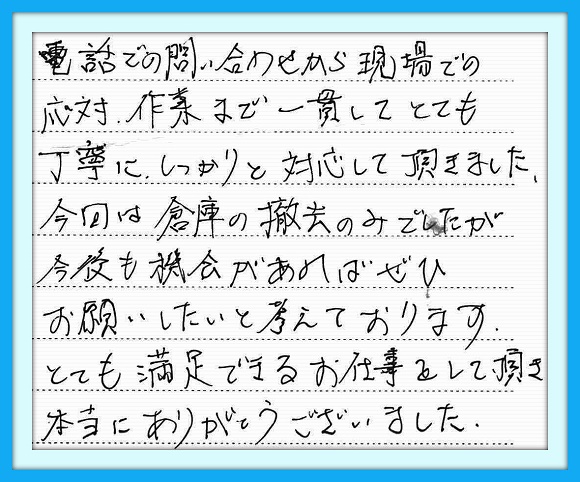 電話での問い合わせから現場での
応対、作業まで一貫してとても
丁寧に、しっかりと対応して頂きました、
今回は倉庫の撤去のみでしたが
今後も機会があればぜひ
お願いしたいと考えております.
とても満足できるお仕事をして頂き
本当にありがとうございました.